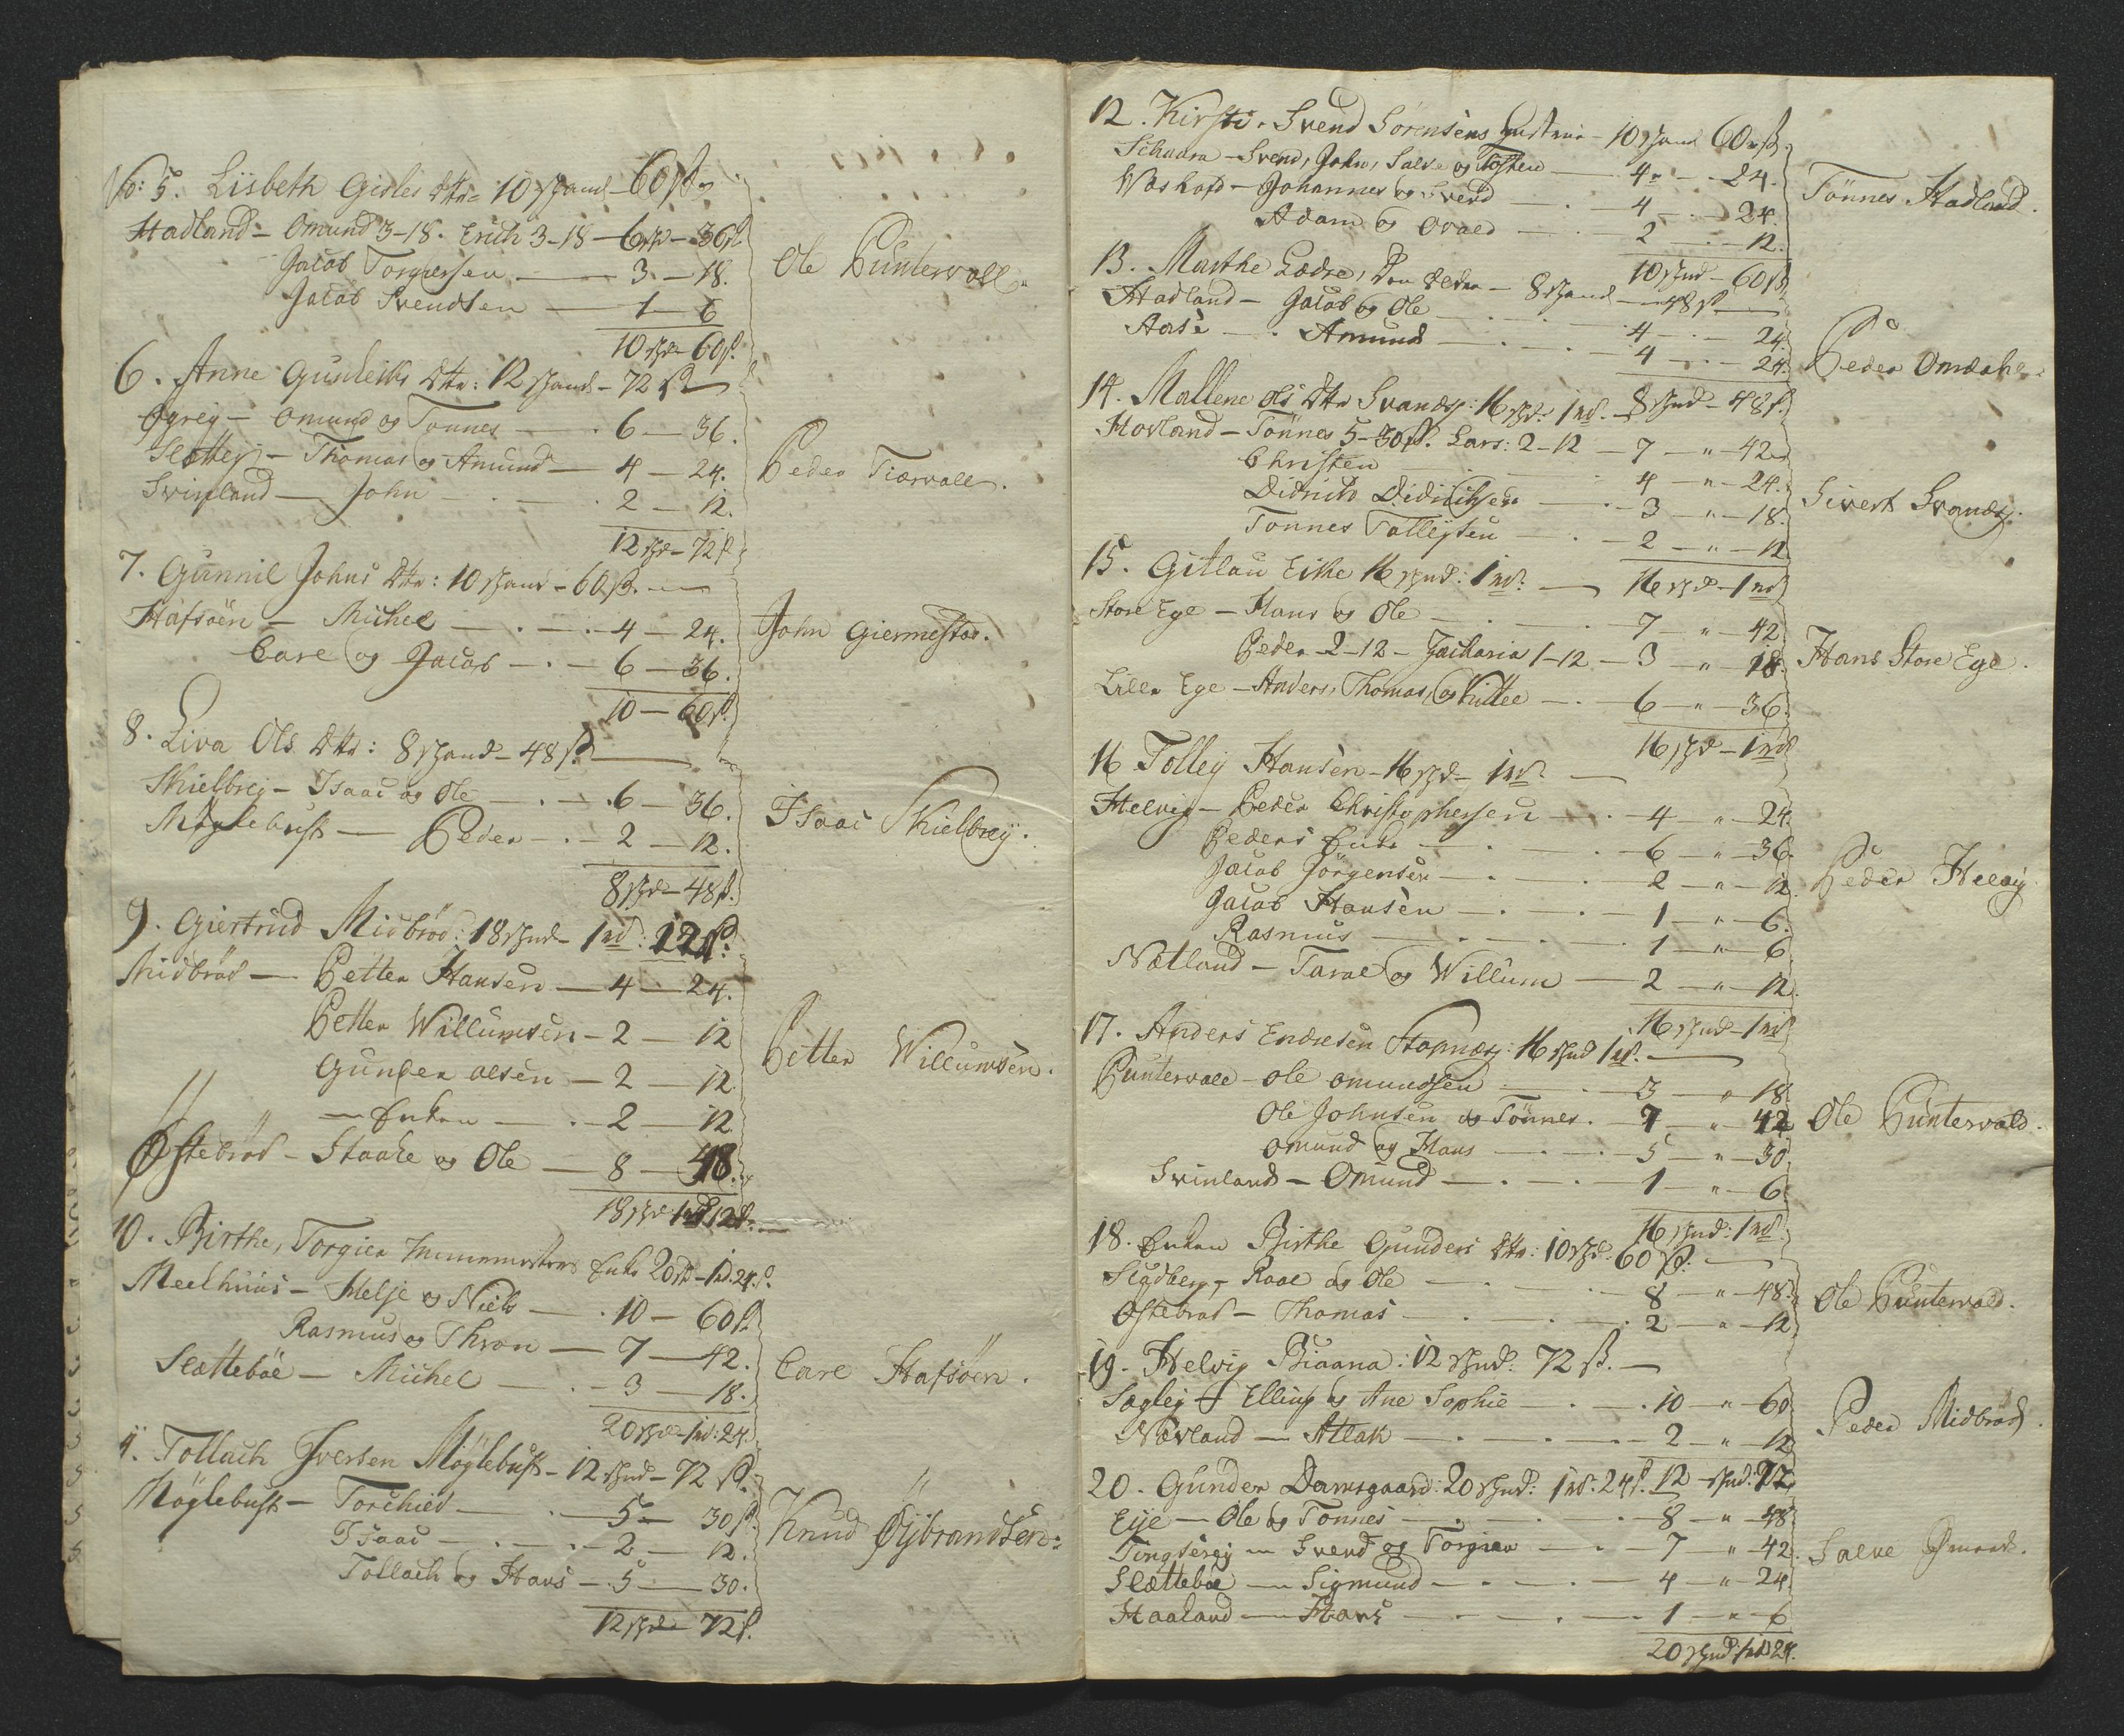 No: 5. Lisbeth Gisles Dtr: 10 spand - 60 ß
Hadland - Omund 3-18. Erich 3-18 - 6 spd - 36 ß
Jacob Torgiersen - 3 - 18.
Jacob Svendsen - 1 - 6
10 spd - 60 ß.
Ole Puntervoll
6. Anne Gunleiks Dtr: 12 spand - 72 ß
Øgreÿ - Omund og Tønnes - 6 - 36.
Slettej - Thomas og Amund - 4 - 24.
Svinland - John - 2 - 12.
12 spd - 72 ß
Peder Tiørvall.
7. Gunnil Johns Dtr: 10 spand - 60 ß.
Hafsöen - Michel - 4 - 24.
Carl og Jacob - 6 - 36.
10 - 60 ß.
John Giermestad.
8. Liva Ols Dtr: 8 spand - 48 ß
Skielbrej - Isaac og Ole - 6 - 36.
Møglebust - Peder - 2 - 12.
8 spd - 48 ß.
Isaac Skielbreÿ.
9. Giertrud Midbröd: 18 spnd - 1 rd: 12 ß.
Midbröd - Petter Hansen - 4 - 24.
Petter Willumsen - 2 - 12
Gunder Olsen - 2 - 12
" - Enken - 2 - 12
Østebröd - Staale og Ole - 8 - 48.
18 spd 1 rd 12 ß.
Petter Willumsen.
10. Birthe, Torgier Enke 20 sp - 1 rd. 24 ß.
Meelhuus - Helje og Niels - 10 - 60 ß.
Rasmus og Thron - 7 - 42.
Sletteböe - Michel - 3 - 18.
20 spd - 1 rd: 24.
Carl Hafsöen.
11. Tollach Iversen Möglebust - 12 spnd - 72 ß.
Möglebust - Torchild - 5 - 30 ß.
Isaac - 2 - 12.
Tollach og Hans - 5 - 30.
12 spd - 72 ß.
Knud Øÿbrandsen:
12. Kirsti, Svend Sörensens - 10 spand 60 ß.
Schaara - Svend, John, Salve og Tosten - 4 - 24.
Johannes og Svend - 4 - 24.
Adam og - 2 - 12.
10 spnd - 60 ß
Tönnes Hadland.
13. Marthe Lædre, - 8 spand - 48 ß
Hadland - Jacob og Ole - 4 - 24.
Aase - Amund - 4 - 24.
8 spnd - 48 ß.
Peder Omdahl
14. Mallene Ols Dtr Svanæs: 16 spd: 1 rd.
Hovland - Tönnes 5-30 ß. Lars: 2-12 - 7 " 42
Christen - 4 " 24.
Didrich Didrichsen - 3 " 18.
Tonnes Tollejsen - 2 " 12
16 spd - 1 rd
Sivert Svanæs.
15. Gitlau Eike 16 spnd: 1 rd.
Store Ege - Hans og Ole - 7 " 42
Peder 2-12 - Zacharia 1-12 - 3 " 18.
Lille Ege - Anders, Thomas, og Kittel - 6 " 36.
16 spd - 1 rd
Hans Store Ege.
16 Tollej Hansen - 16 spd - 1 rd.
Helvig - Peder Christophersen - 4 " 24.
Peders Enke - 6 " 36.
Jacob Jörgensen - 2 " 12.
Jacob Hansen - 1 " 6.
Rasmus - 1 " 6
Netland - Taral og Willum - 2 " 12.
16 spnd - 1 rd
Peder Helvig.
17. Anders Endresen Stapnæs: 16 spnd 1 rd.
Puntervoll - Ole Omundsen - 3 " 18.
Ole Johnsen og Tönnes. - 7 " 42
Omund og Hans - 5 " 30
Svinland - Omund - 1 " 6
16 spnd: 1 rd.
Ole Puntervold.
18. Enken Birthe Gunders Dtr: 10 spd: 60 ß:
Sigdberg - Roal og Ole - 8 " 48.
Østebrod - Thomas - 2 " 12
Ole Puntervold.
19. Helvig Biaana: 12 spnd: 72 ß.
Søglej - Elling og Ane Sophie - 10 " 60
Nævland - Atlak - 2 " 12
12 - spnd: 72
Peder Midbröd.
20. Gunder Damsgaard: 20 spnd: 1 rd. 24 ß.
Eÿe - Ole og Tonnes - 8 " 48
Tingserej - Svend og Torgier - 7 " 42.
Slettebøe - Sigmund - 4 " 24.
Haaland - Hans - 1 " 6
20 spnd: 1 rd 24.
Salve